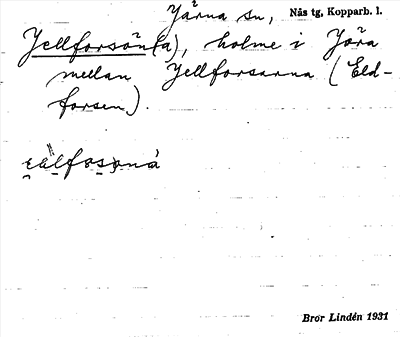 Järna sn, Nås tg, Kopparb. l.
Jellforsön(a), holme i Jöra
mellan Jellforsarna (Eld-
forsen).
Bror Lindén 1931